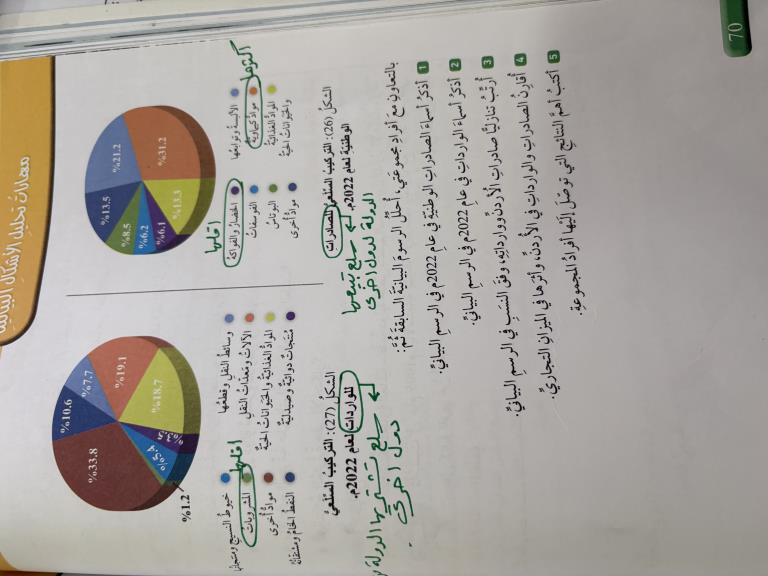 مهارات تحليل الأشكال البيانية
أكثرها
%31.2
%21.2
%13.5
%8.5
%6.2
%6.1
%13.3
الألبسة وتوابعها
مواد كيماوية
المواد الغذائية
والحيوانات الحية
الخضار والفواكه
الفوسفات
البوتاس
مواد أخرى
اقلها
الشكل (26): التركيب السلعي للصادرات
الوطنية لعام 2022م.
سلع تبيعها
الدولة لدول اخرى
%7.7
%10.6
%19.1
%18.7
%33.8
%1.2
وسائط النقل وقطعها
الآلات ومعدات النقل
المواد الغذائية والحيوانات الحية
منتجات دوائية وصيدلية
خيوط النسيج
المشروبات
مواد أخرى
النفط الخام ومشتقاته
اقلها
الشكل (27): التركيب السلعي
للواردات لعام 2022م.
سلع تشتريها الدولة
دول اخرى
بالتعاون مع أفراد مجموعتي، أحلل الرسوم البيانية السابقة ثم:
1 أذكر أسماء الصادرات الوطنية في عام 2022م في الرسم البياني.
2 أذكر أسماء الواردات في عام 2022م في الرسم البياني.
3 أرتب تنازليا صادرات الأردن ووارداته، وفق النسب في الرسم البياني.
4 أقارن الصادرات والواردات في الأردن، وأثرها في الميزان التجاري.
5 أكتب أهم النتائج التي توصل إليها أفراد المجموعة.
70